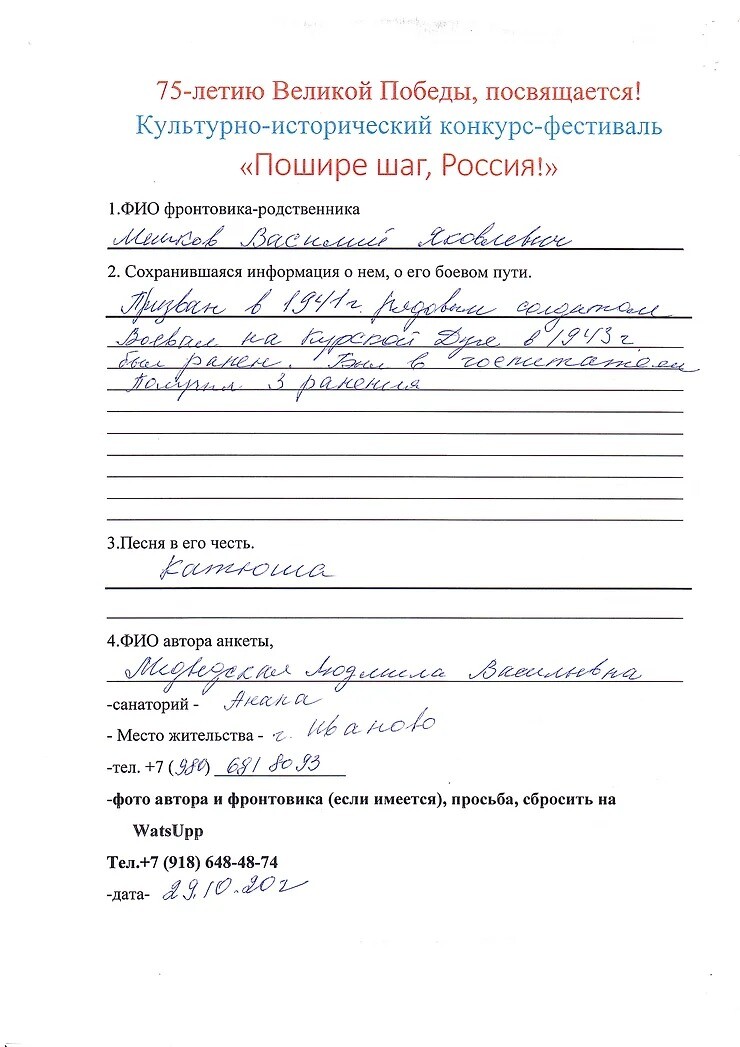 75-летию Великой Победы, посвящается!
Культурно-исторический конкурс-фестиваль
«Пошире шаг, Россия!»
1.ФИО фронтовика-родственника
Мешков Василий Яковлевич
2. Сохранившаяся информация о нем, о его боевом пути.
Призван в 1941г. рядовым солдатом.
Воевал на Курской Дуге в 1943г
был ранен. Был в госпитале
Получил 3 ранения
3.Песня в его честь.
Катюша
4.ФИО автора анкеты,
Медведская Людмила Васильевна
-санаторий - Анапа
- Место жительства - г. Иваново
-тел. +7 (980) 681 8093
-фото автора и фронтовика (если имеется), просьба, сбросить на
WatsUpp
Тел.+7 (918) 648-48-74
-дата- 29.10.20г